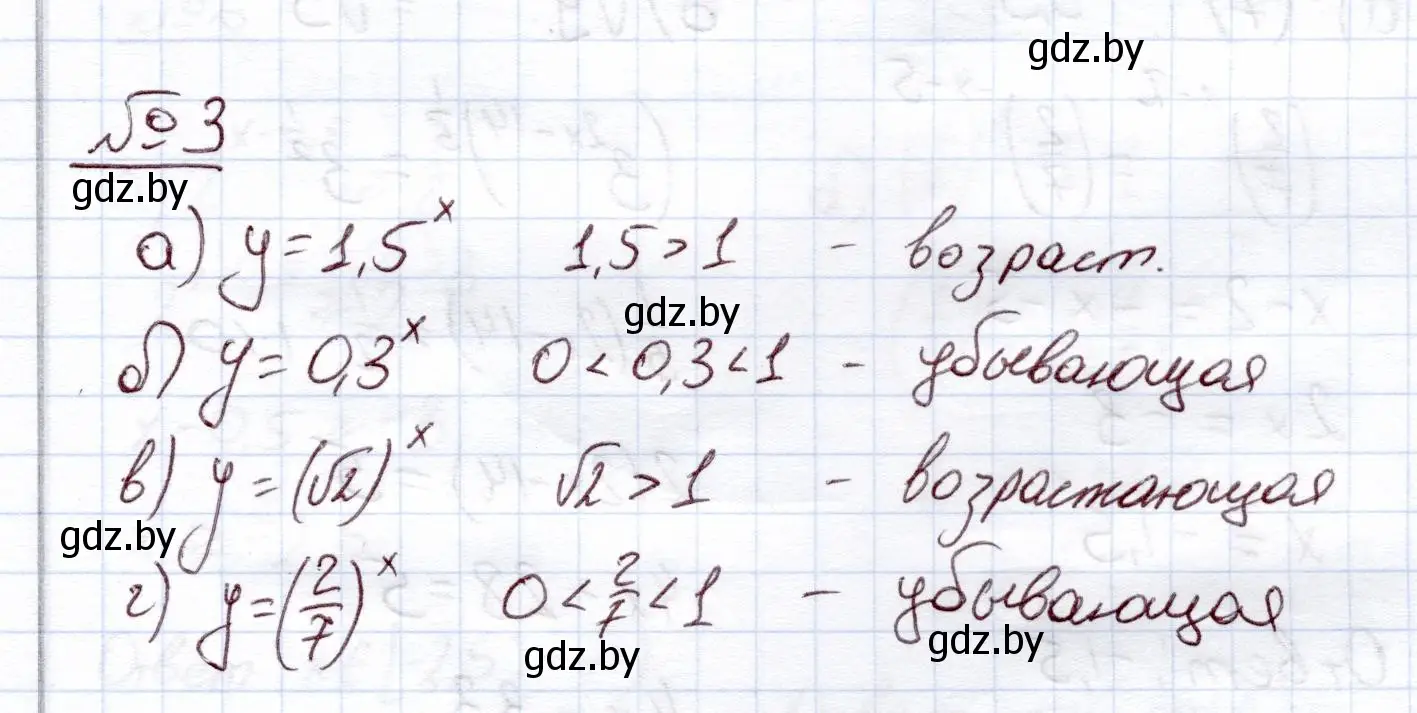 gdz.by
№ 3
gdz.by
а) y = 1,5^x 1,5 > 1 - возраст.
gdz.by
б) y = 0,3^x 0 < 0,3 < 1 - убывающая
в) y = (√2)^x √2 > 1 - возрастающая
gdz.by
г) y = (2/7)^x 0 < 2/7 < 1 - убывающая
gdz.by gdz.by